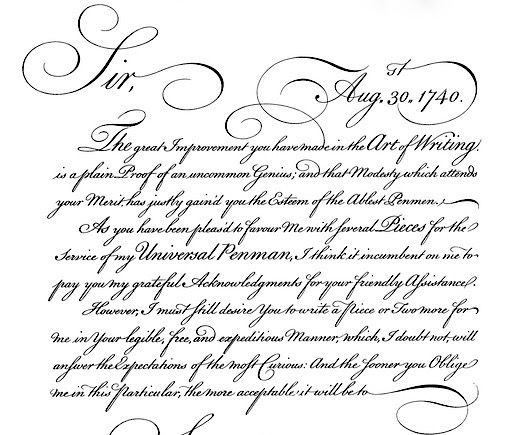 Sir,
Aug.st 30. 1740.
The great Improvement you have made in the Art of Writing,
is a plain Proof of an uncommon Genius; and that Modesty which attends
your Merit, has justly gain'd you the Esteem of the Ablest Penmen.
As you have been pleas'd to favour Me with several Pieces for the
Service of my Universal Penman, I think it incumbent on me to
pay you my grateful Acknowledgments for your friendly Assistance.
However, I must still desire You to write a Piece or Two more for
me in Your legible, free, and expeditious Manner, which, I doubt not, will
answer the Expectations of the most Curious: And the sooner you Oblige
me in this Particular, the more acceptable it will be to